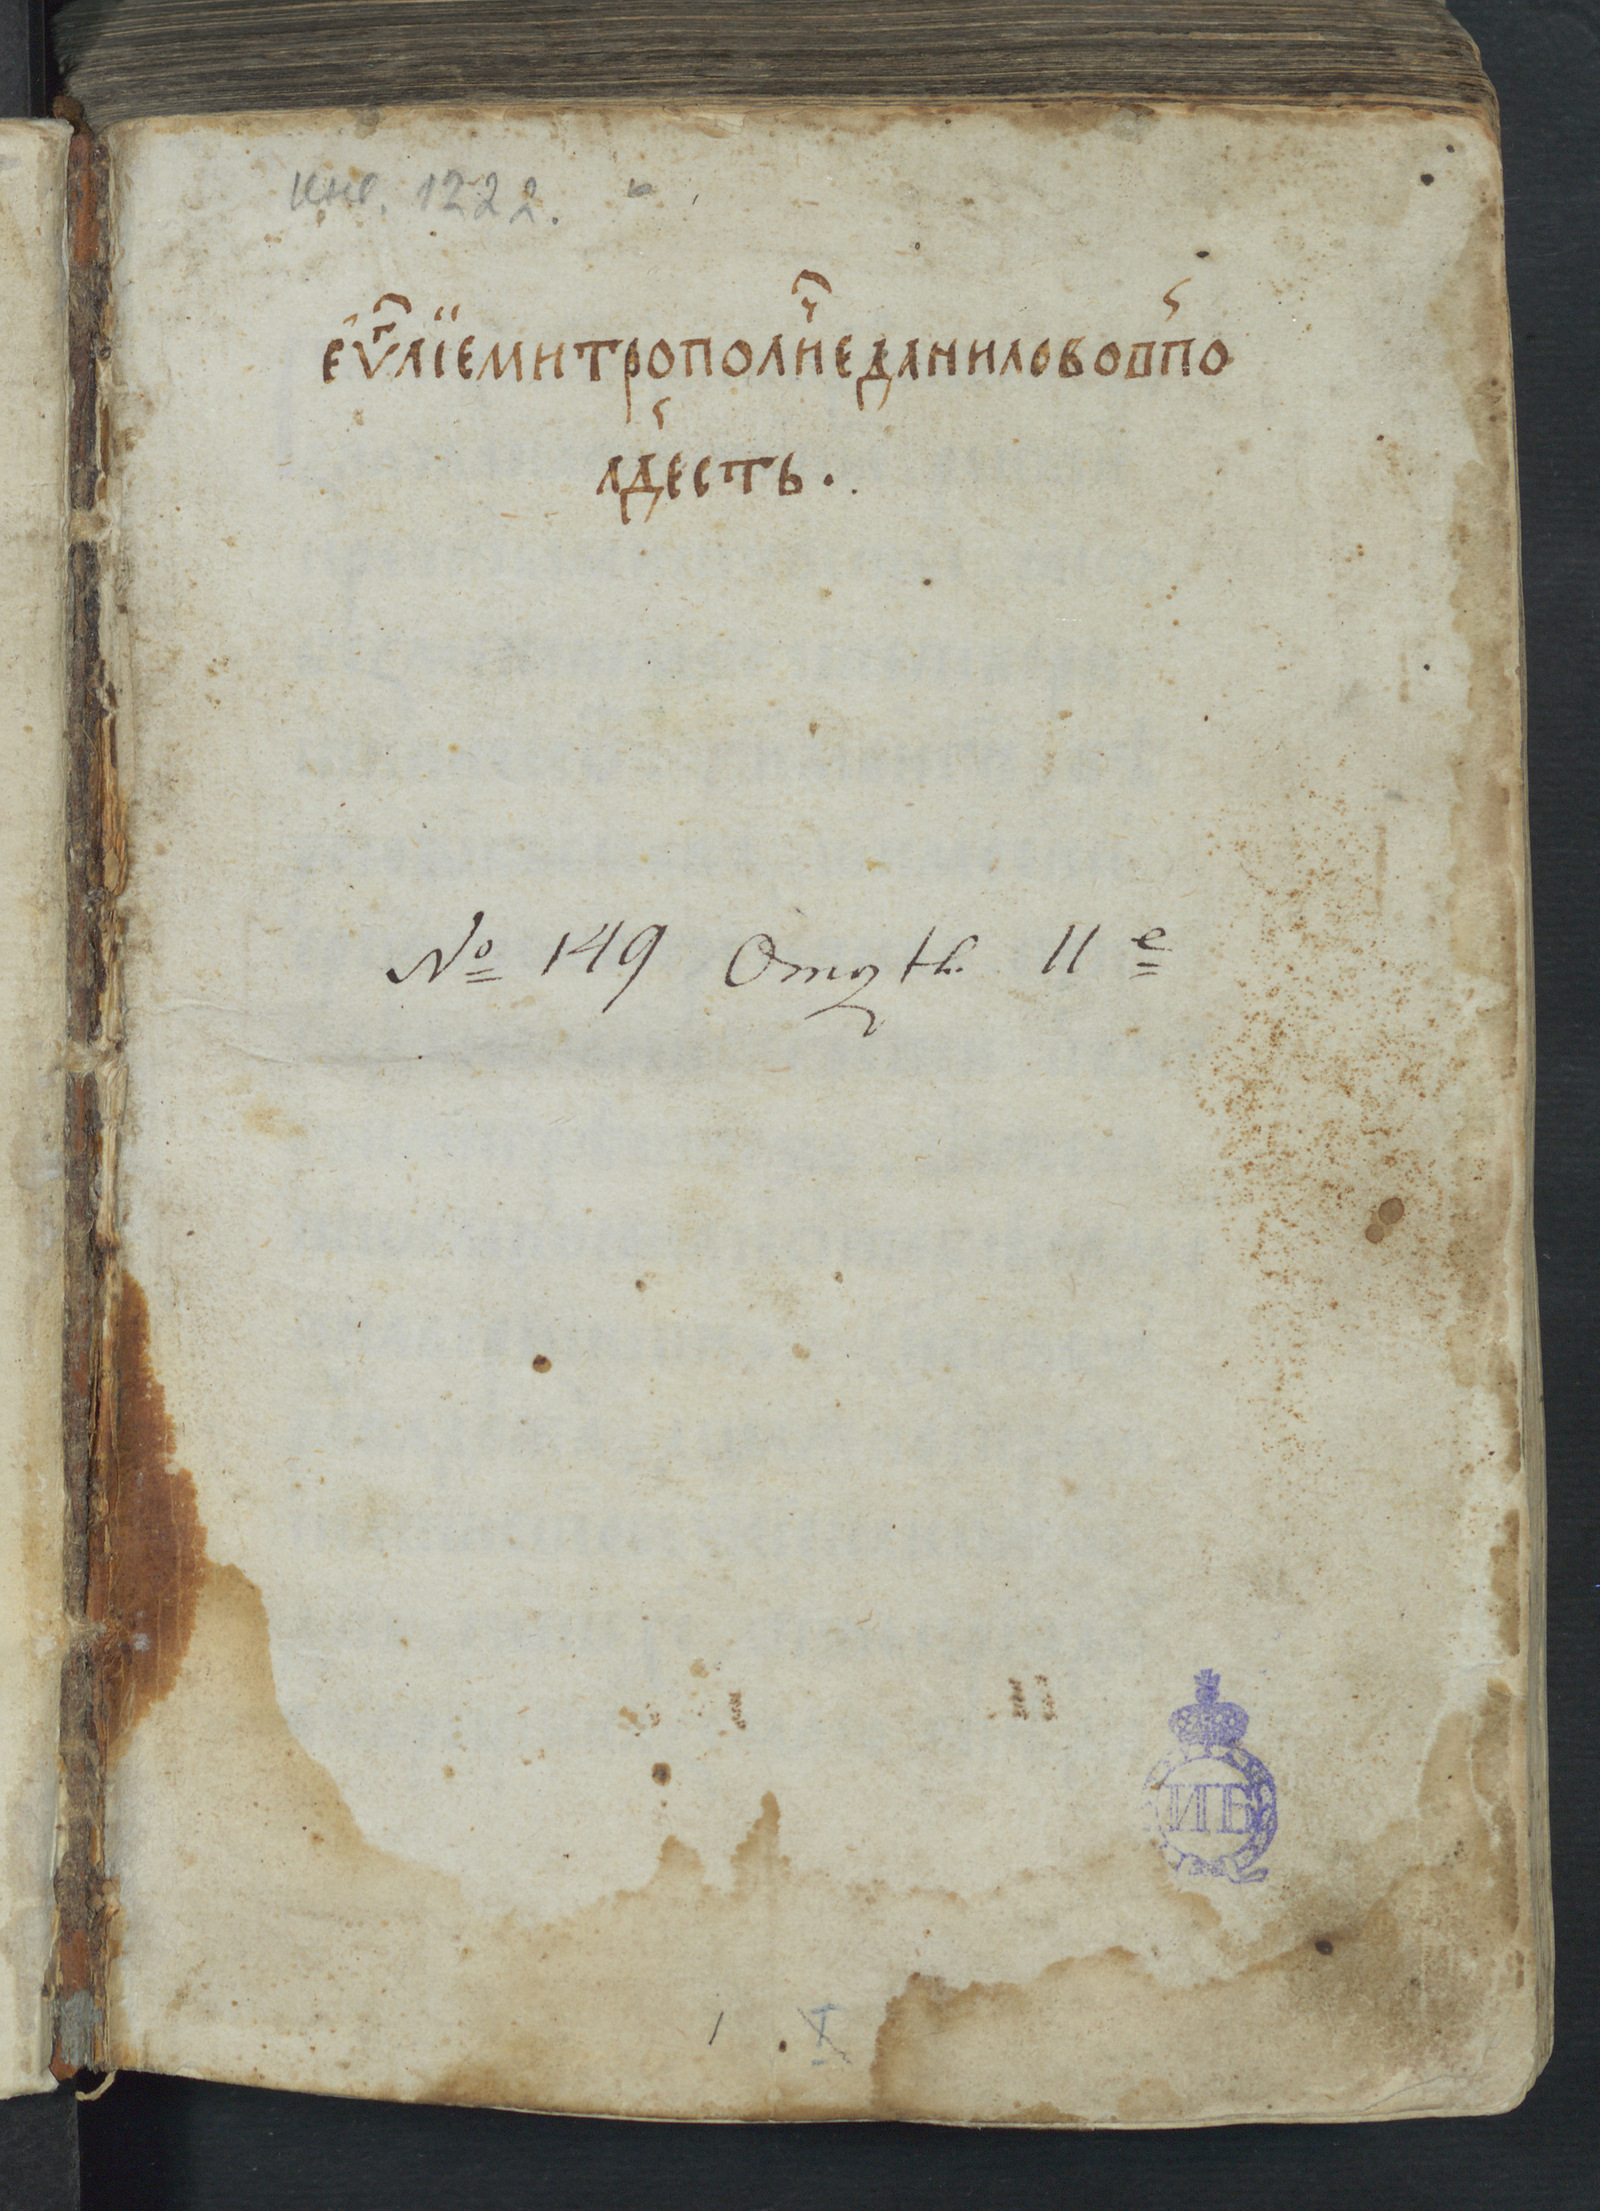 инв. 1222.
еѵⷢ҇лїемитрополⷱ҇иеданилововпо
лдесть.
№ 149 Отдѣл. II е
ИПБ
1 I